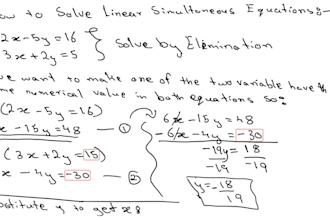 ow to Solve Linear Simultaneous Equations:-
2x - 5y = 16
3x + 2y = 5
Solve by Elimination
we want to make one of the two variable have th
me numerical value in both equations so:
(2x - 5y = 16)
x - 15y = 48 - ①
(3x + 2y = 15)
x - 4y = -30 - ②
6x - 15y = 48
- 6x - 4y = -30
-19y = 18
-19 -19
y = -18
19
bstitute y to get x: